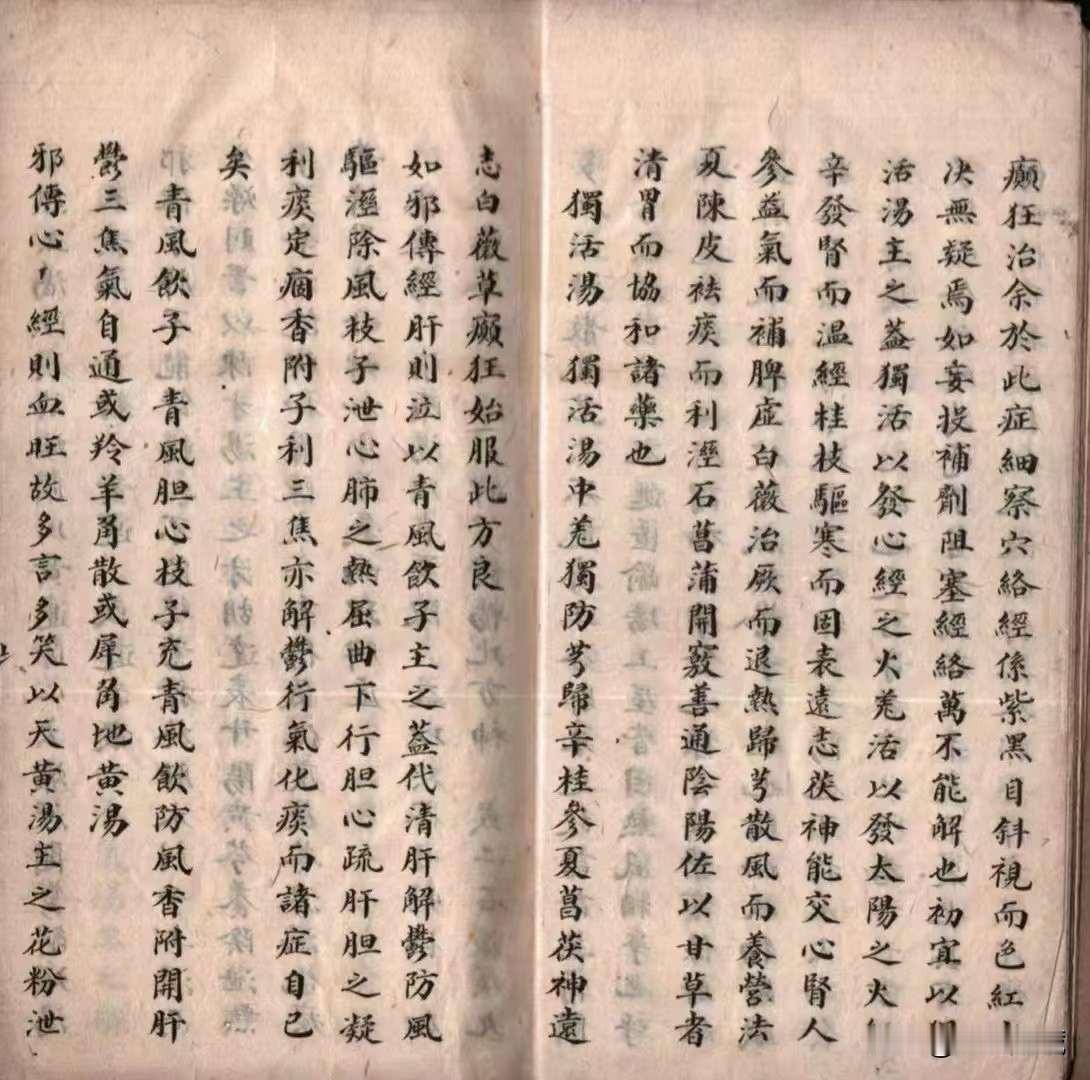 癲狂治余於此症細察穴絡經係紫黑目斜視而色紅
决無疑焉如妄投補劑阻塞經絡萬不能解也初宜以
活湯主之葢獨活以發心經之火羗活以發太陽之火
辛發腎而温經桂枝驅寒而固表遠志茯神能交心腎人
參益氣而補脾虚白薇治厥而退熱歸芎散風而養營法
夏陳皮祛痰而利溼石菖蒲開竅善通陰陽佐以甘草者
清胃而協和諸藥也
獨活湯 獨活湯中羗獨防芎歸辛桂參夏菖茯神遠
志白薇草癲狂始服此方良
如邪傳經肝則泣以青風飲子主之葢代清肝解鬱防風
驅溼除風枝子泄心肺之熱屈曲下行胆心疏肝胆之凝
利痰定痼香附子利三焦亦解鬱行氣化痰而諸症自已
矣
青風飲子 青風胆心枝子充青風飲防風香附開肝
鬱三焦氣自通或羚羊角散或犀角地黄湯
邪傳心經則血旺故多言多笑以天黄湯主之花粉泄